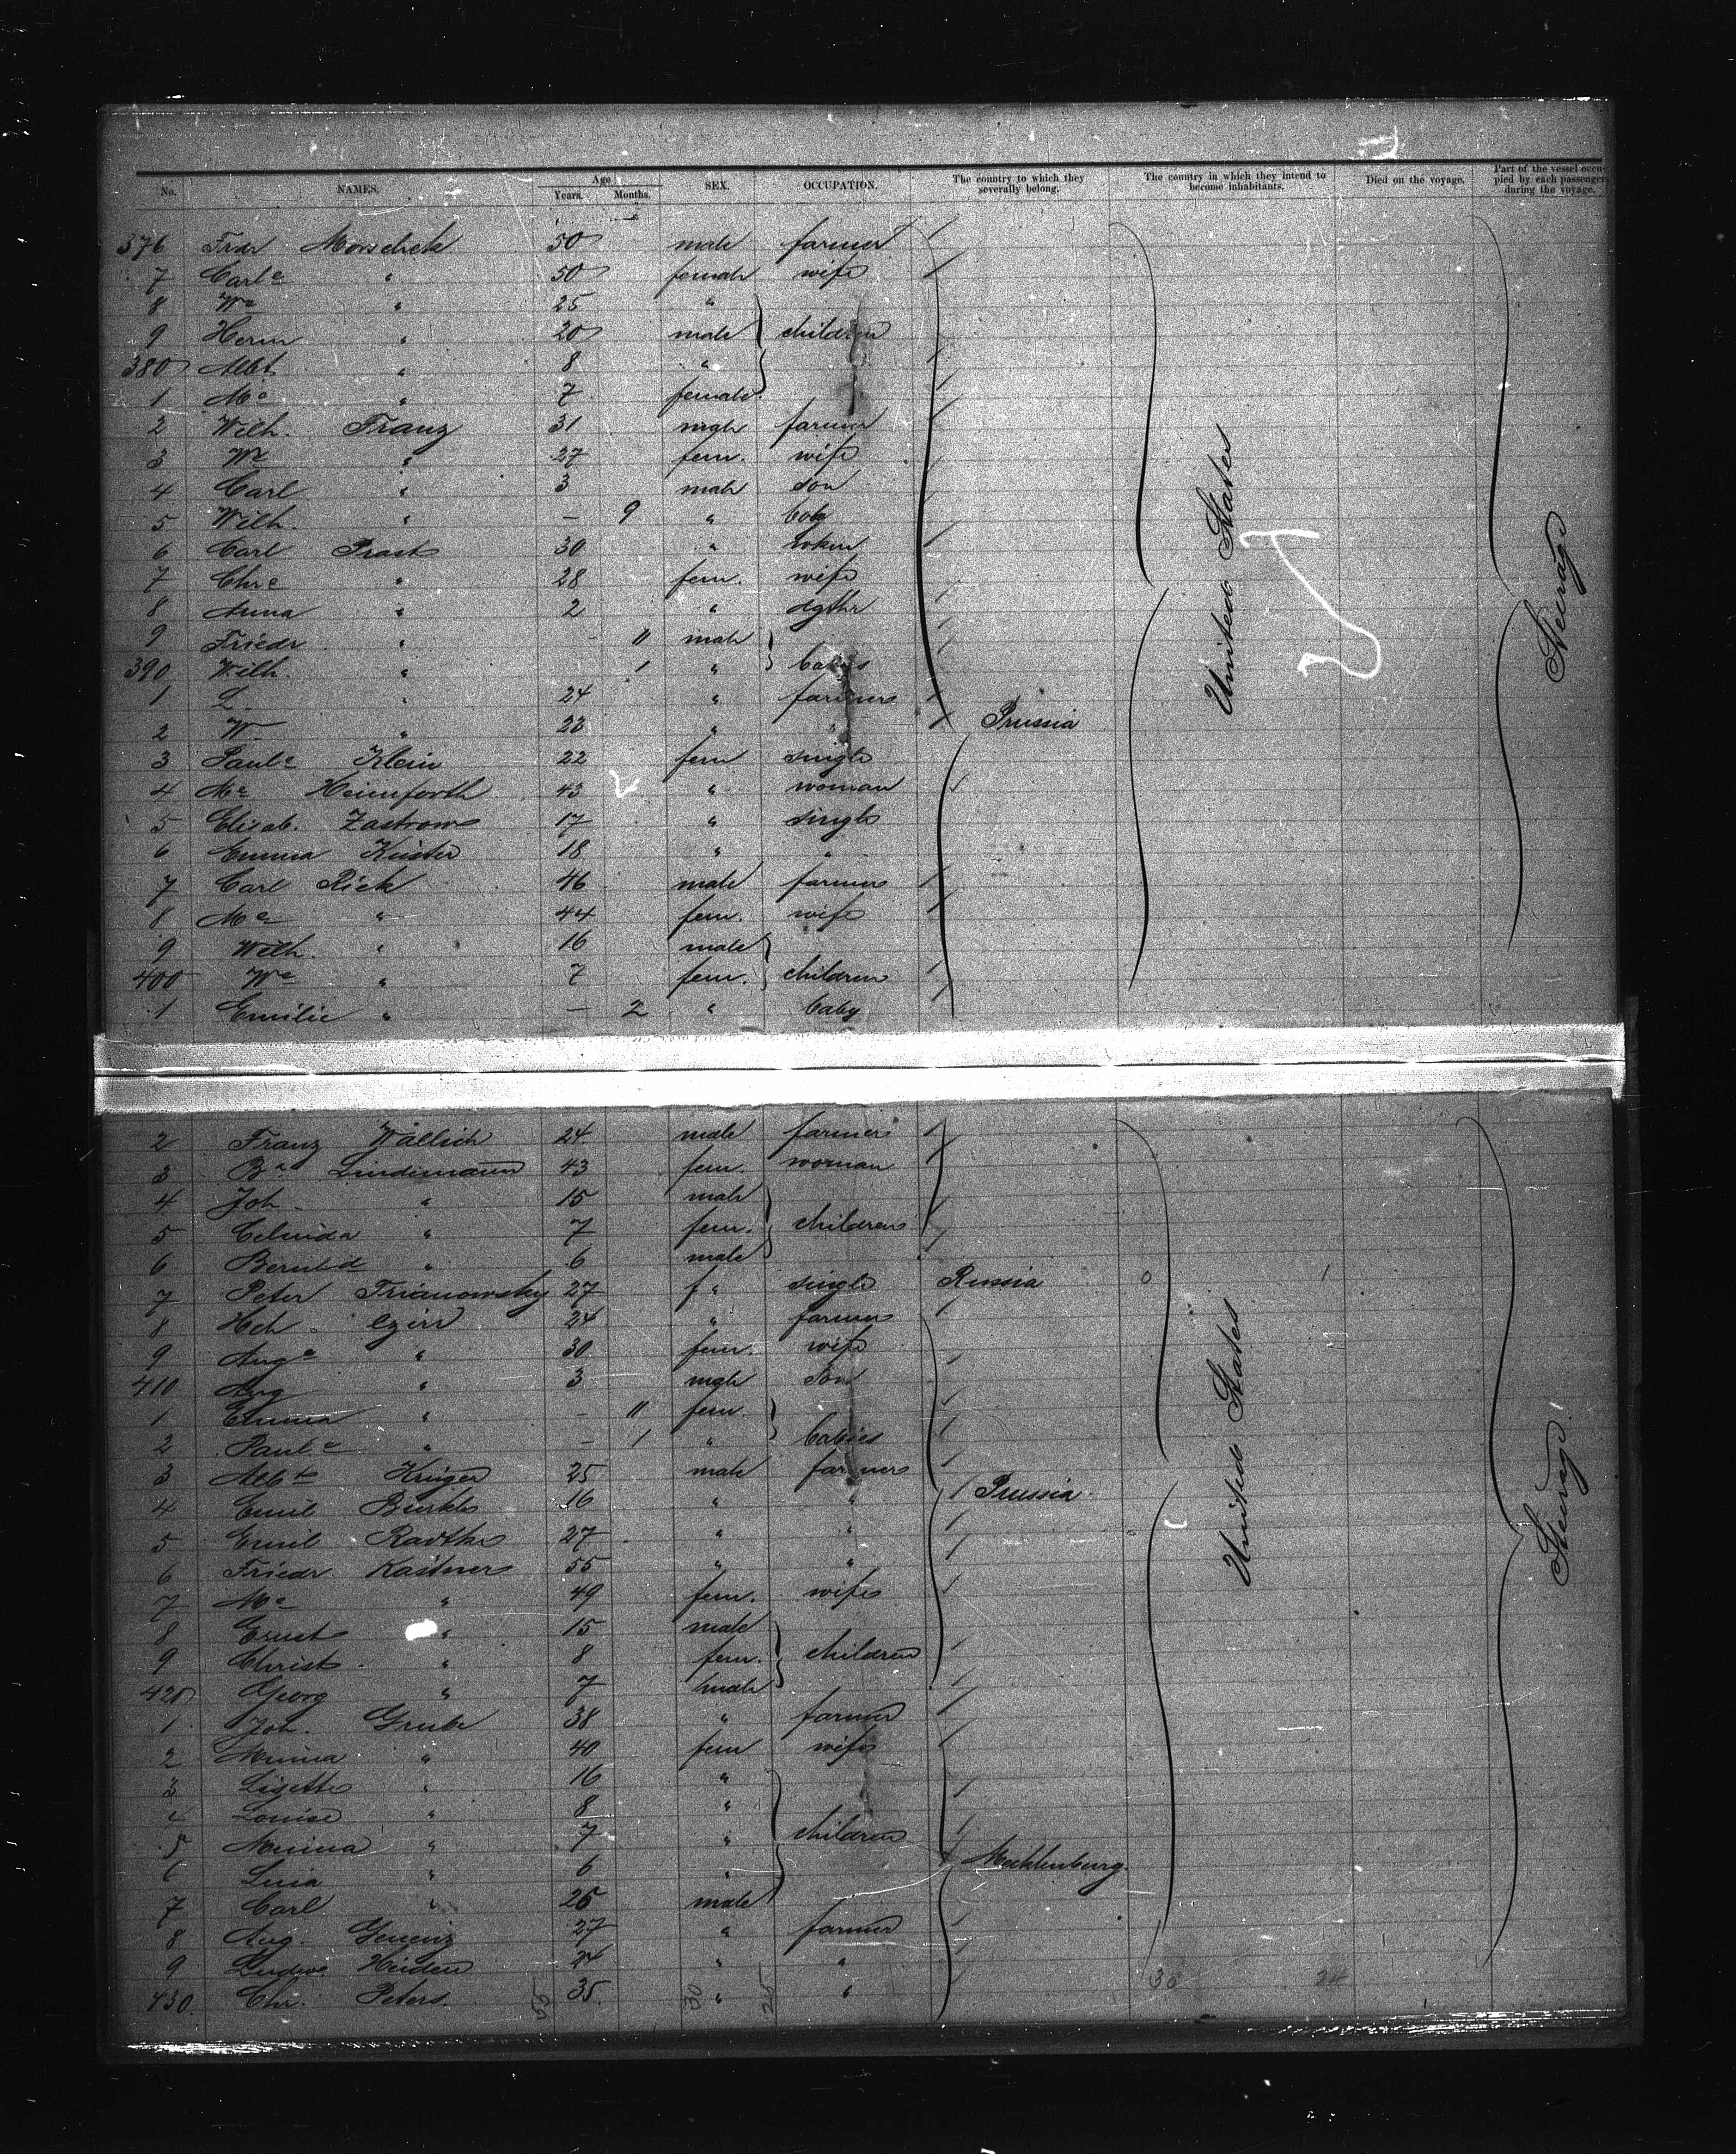 No. NAMES. Age Years. Months. SEX. OCCUPATION. The country to which they severally belong. The country in which they intend to become inhabitants. Died on the voyage. Part of the vessel occupied by each passenger during the voyage.
376 Frdr Morscheck 50 male farmer
7 Carle " 50 female wife
8 We " 25 "
9 Herm " 20 male children
380 Albt " 8 "
1 Me " 7 female
2 Wilh. Franz 31 male farmer
3 We " 27 fem. wife
4 Carl " 3 male son
5 Wilh. " — 9 " baby
6 Carl Prast 30 "
7 Chre " 28 fem. wife
8 Anna " 2 " dgthr
9 Friedr " - 11 male
390 Wilh. " 1 " babies
1 L " 24 " farmers
2 W " 22 " " Prussia
3 Paule Klein 22 fem single
4 Me Heimforth 43 " woman
5 Elisab. Zastrow 17 " single
6 Emma Küster 18 " "
7 Carl Rick 46 male farmer
8 Me " 44 fem. wife
9 Wilh. " 16 male
400 We " 7 fem. children
1 Emilie " — 2 " baby
United States
Steerage
2 Franz Wällich 24 male farmer
3 Be Lindemann 43 fem. woman
4 Joh " 15 male
5 " 7 fem. children
6 " 6 male
7 Peter Trianowsky 27 f " single Russia
8 Hch 24 " farmer
9 Auge " 30 fem. wife
410 Aug " 3 male son
1 Emma " - 11 fem.
2 Paule " - 1 " babies
3 Albt Krüger 25 male farmers
4 Emil 16 " " Prussia.
5 Emil Radtke 27 " "
6 Friedr Kastner 55 " "
7 Me " 49 fem. wife
8 Ernst " 15 male
9 Christ. " 8 fem. children
420 Georg " 7 male
1 Joh. Grube 38 " farmer
2 Minna " 40 fem wife
3 Lisette " 16 "
4 Louise " 8 "
5 Minna " 7 " children
6 Lina " 6 " Mecklenburg.
7 Carl " 26 male
8 Aug. 27 " farmer
9 Ludw. Heiden 24 " "
430 Chr. Peters. 35. " "
United States
Steerage
55 30 25